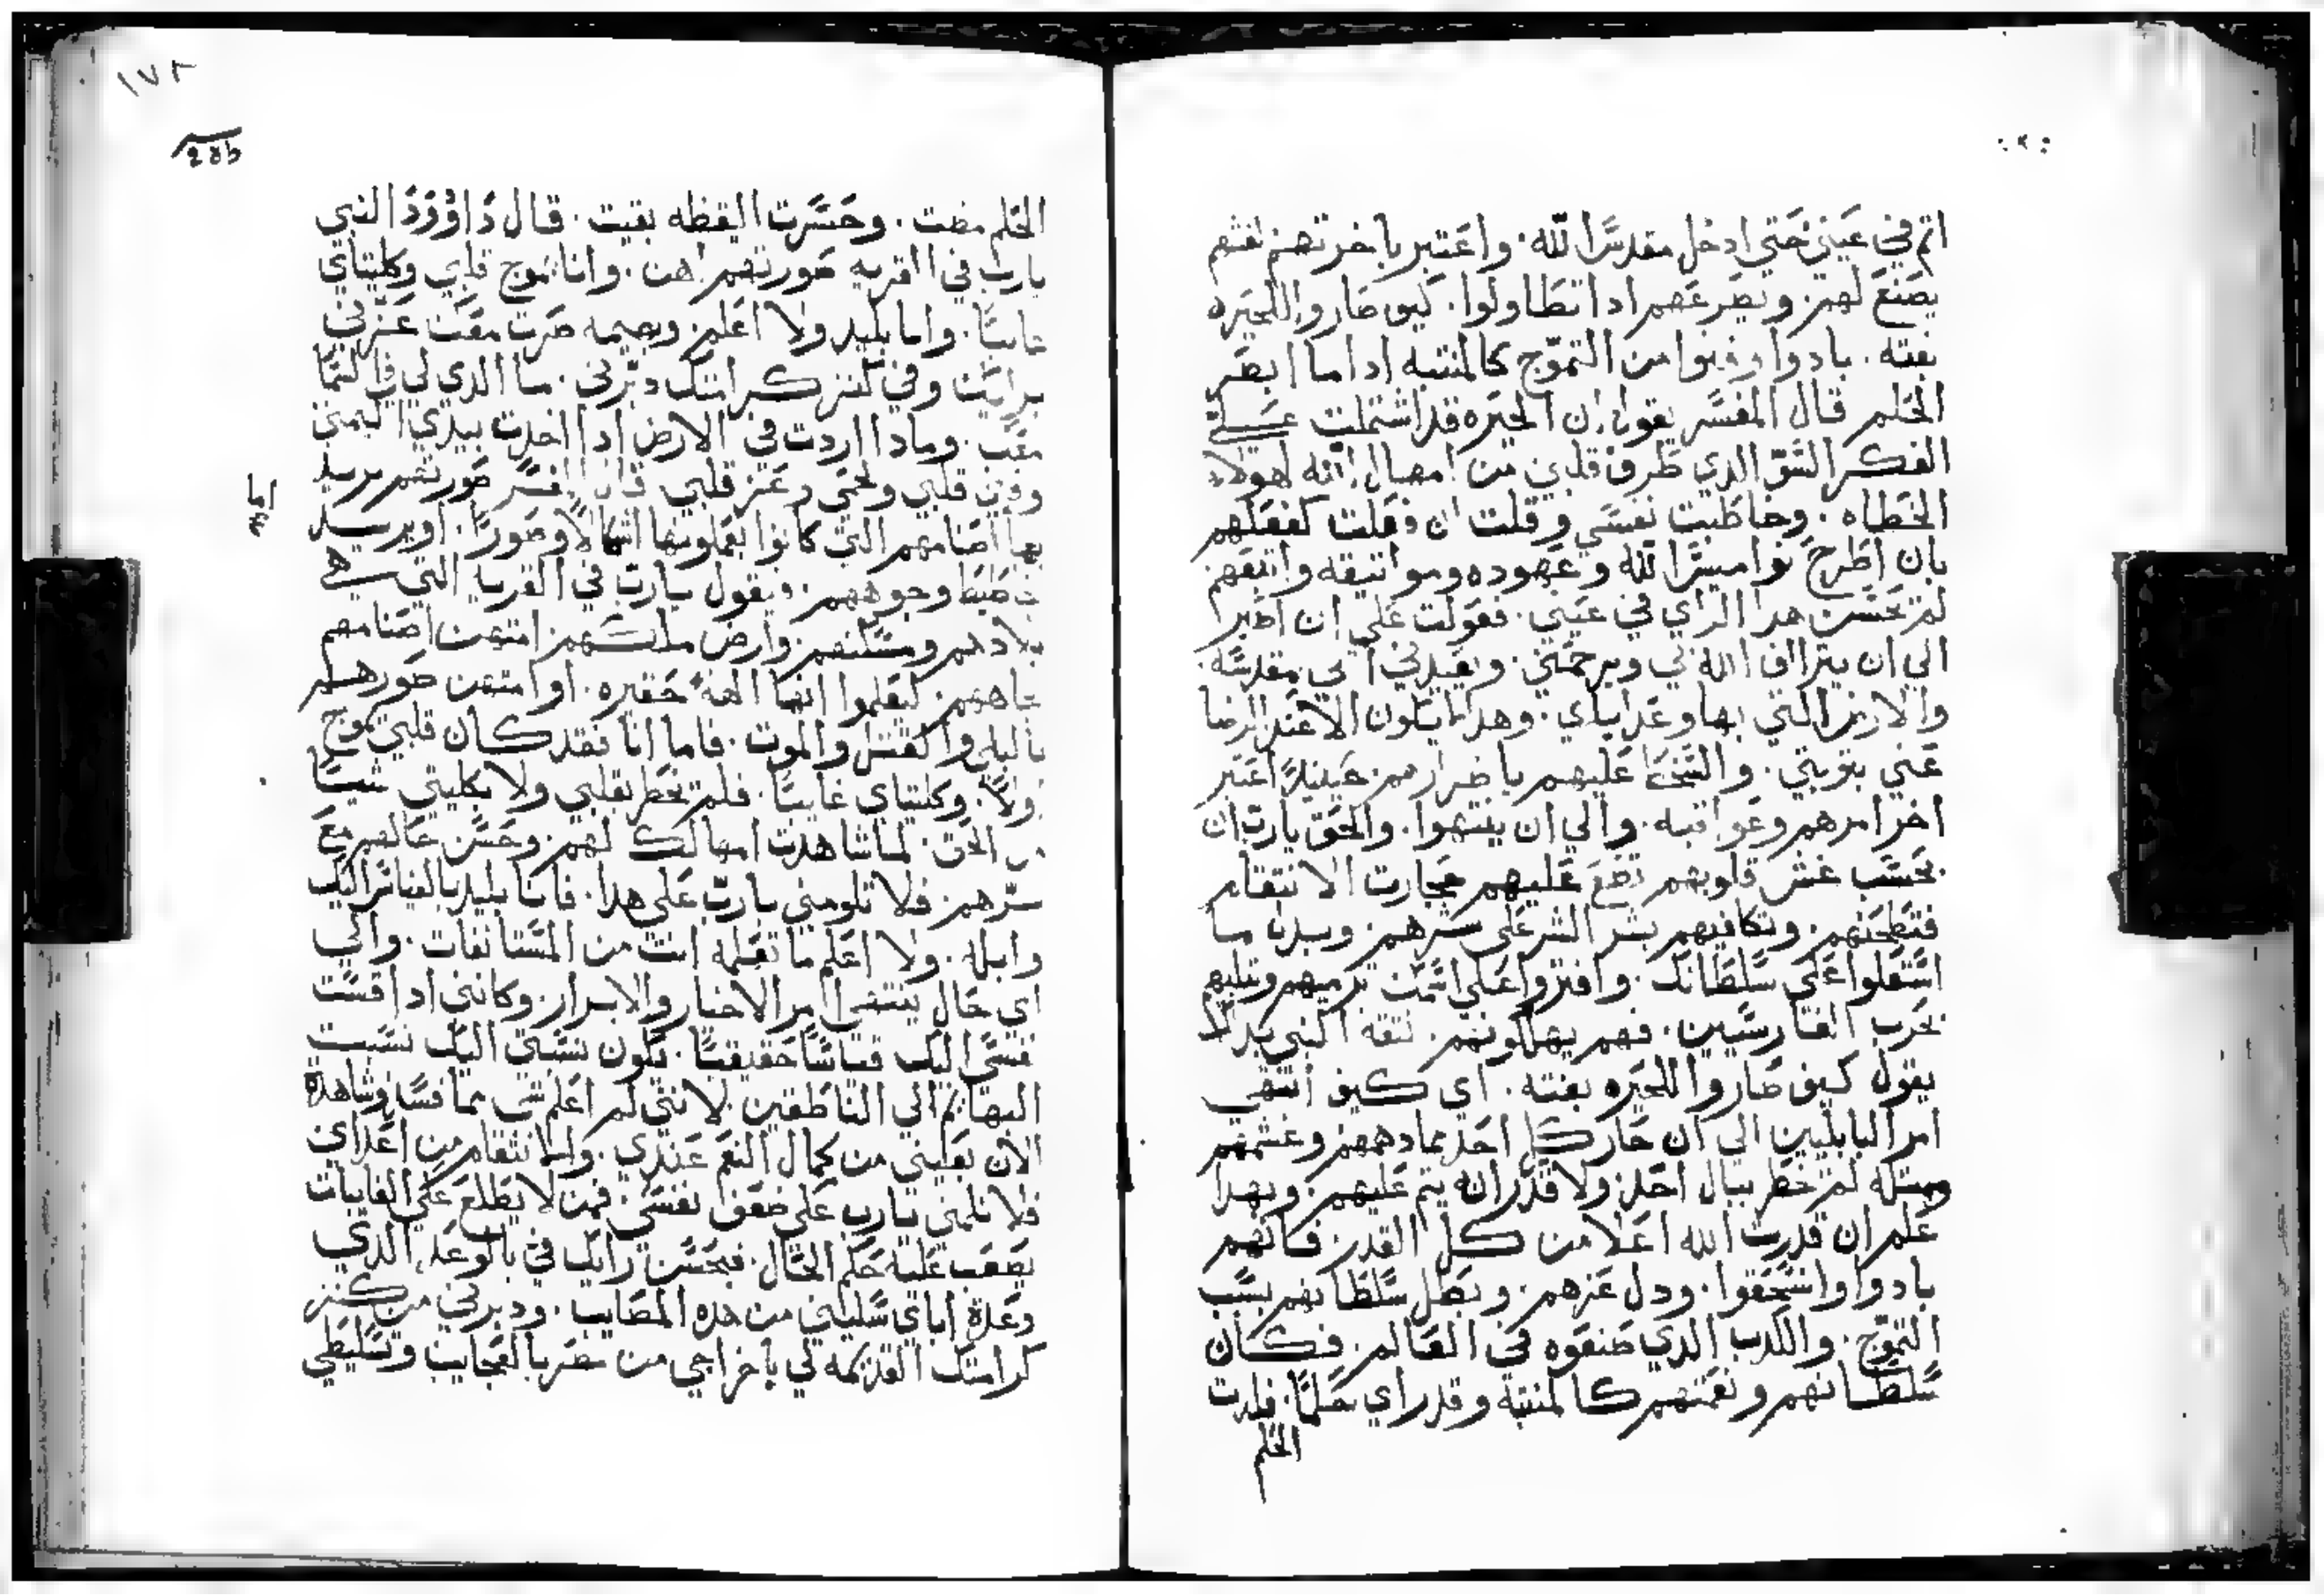 اثم في عيني حتى ادخل مقدس الله. واعتبر باخرتهم لغشهم
يصنع لهم. وتصرعهم ادا تطاولوا. كيف صاروا للحيره
بغته. بادوا وفنوا من التموّج كالمنتبه ادا ما ابصر
الحلم قال المفسر يقول ان الحيره قد اشتملت على
الفكر السّوّ الدي طرق قلبي من امهال الله لهولاء
الخطاه. وخاطبت نفسي وقلت ان فعلت كفعلهم
بان اطرح نواميس الله وعهوده ومواثيقه واتبعهم
لم تحسن هدا الراي في عيني. فعولت على ان اصبر
الى ان يتراف الله بي ويرحمني. ويعيدني الى مقدسه.
والارض التي بها وعد اباي. وهدا ما يكون الا عند الرضا
عني بتوبتي. والسخط عليهم باضرارهم. حينيدٍ اعتبر
اخر امرهم وعواقبه. والى ان ينتهوا. والحق يارب ان
بحسب غش قلوبهم تضع عليهم مجارت الانتقام
فتطحنهم. وتكافيهم بشر الشر على شرهم. وبدل ما
استعلوا على سلطانك. وافتروا على اسمك ترميهم وتبليهم
بحرب الفارسيين. فهم يهلكونهم. ثقة النبي بدلك
يقول كيف صاروا للحيره بغته. اي كيف انتهى
امر البابليين الى ان حار كل احد بما دهمهم وغشيهم
ومتله لم خطر ببال احد. ولا قدّر انه يتم عليهم. وبهدا
علم ان قدرت الله اعلا من كل القدر. فانهم
بادوا وانسحقوا. ودل عزهم. وبطل سلطانهم بسبب
التموّج. والكدب الدي صنعوه في العالم. فكان
سلطانهم ونعمتهم كالمنتبه وقد راى حلمًا. فلدت
الحلم
١٧٢
الحلم مضت. وحسرت اليقظه بقيت. قال داوود النبي
يارب في القريه صورتهم اهن. وانا تموج قلبي وكليتاي
غابتا. وانا بليد ولا اعلم. وبهيمه صرت معك عزني
برايك وفي كنز كرامتك دبرني. ما الدي لي في السما
معك. ومادا اردت في الارض ادا اخدت بيدي اليمنى
وفني قلبي ولحمي وعز قلبي قال المفسر صورتهم يريد
بها اصنامهم التي كانوا يعملونها اشكالًا وصورًا. او يريد
وجوههم. ويقول يارب في القريه التي هي
بلادهم ومسكنهم وارض ملكهم امتهن اصنامهم
ليعلموا انها الهة حقيره. او امتهن صورهم
بالبلى والقتل والموت. فاما انا فقد كان قلبي تموج
اولًا. وكليتاي غابتا. فلم يخطر بقلبي ولا بكليتي شيًا
من الحق. لما شاهدت امهالك لهم. وحسن حالهم مع
شرهم. فلا تلومني يارب على هدا. فانا بليد بالقياس اليك
وابله. ولا اعلم ما تعلمه انت من المستانفات. والى
اي حال ينتهى امر الاخيار والابرار. وكانني ادا قست
نفسي اليك قياسًا حقيقيًا. تكون نسبتي اليك نسبت
البهايم الى الناطقين. لانني لم اعلم شي مما قست وشاهدت
الان تعليني من كمال النعم عندي. والانتقام من اعداي
فلا تلمني يارب على ضعف نفسي. فمن لا يطلع على الغايبات
يصعب عليه حكم الحال. فبحسن رايك في بالوعد الدي
وعدته اباي سليني من هده المصايب. ودبرني من كنز
كرامتك القديمه لي باخراجي من مصر بالعجايب وتسليطي